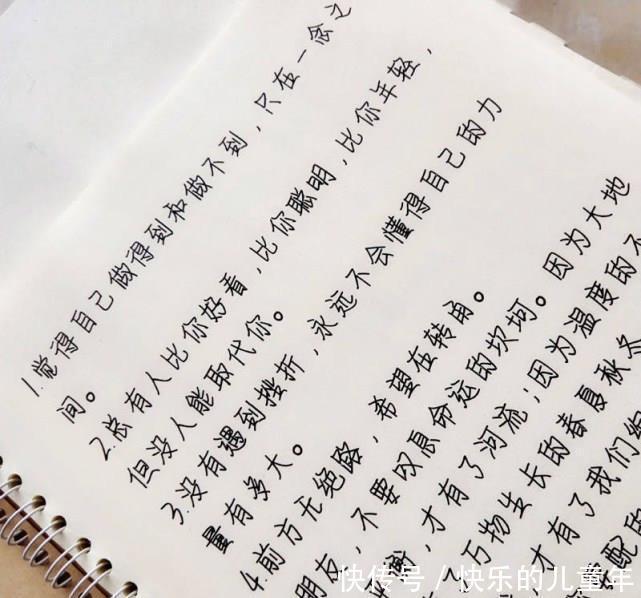 1.觉得自己做得到和做不到，只在一念之
间。
2.总有人比你好看，比你聪明，比你年轻，
但没人能取代你。
3.没有遇到挫折，永远不会懂得自己的力
量有多大。
4.前方无绝路，希望在转角。
朋友，不要叹息命运的坎坷。因为大地
，才有了河流；因为温度的不
万物生长的春夏秋冬
才有了我们绚
快传号/快乐的儿童年